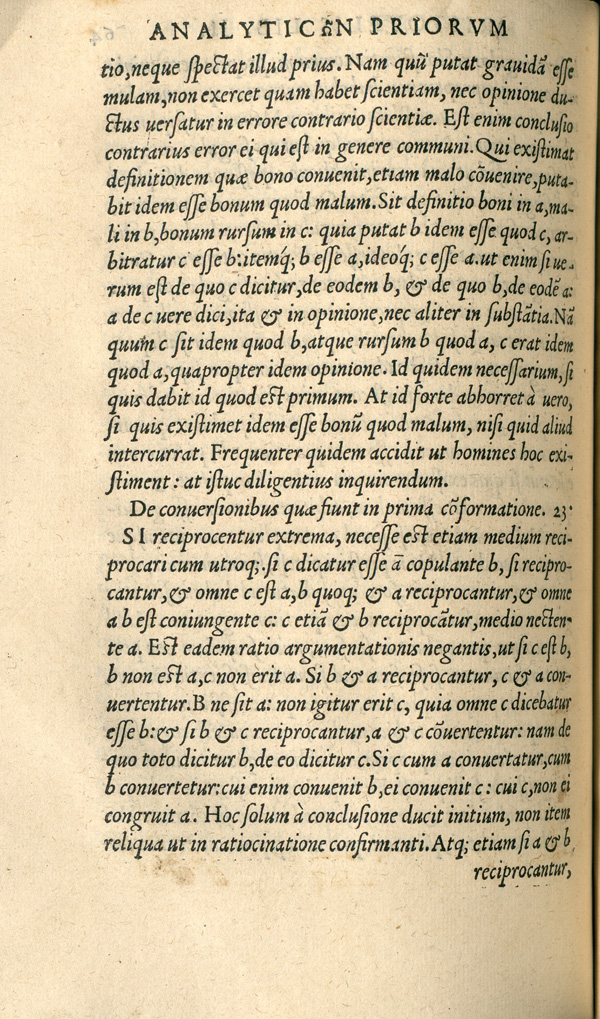 ANALYTICῶN PRIORVM
tio, neque spectat illud prius. Nam quũ putat grauidã esse
mulam, non exercet quam habet scientiam, nec opinione du-
ctus uersatur in errore contrario scientiæ. Est enim conclusio
contrarius error ei qui est in genere communi. Qui existimat
definitionem quæ bono conuenit, etiam malo cõuenire, puta-
bit idem esse bonum quod malum. Sit definitio boni in a, ma-
li in b, bonum rursum in c: quia putat b idem esse quod c, ar-
bitratur c esse b: itemq́; b esse a, ideoq́; c esse a. ut enim si ue-
rum est de quo c dicitur, de eodem b, & de quo b, de eodẽ a:
a de c uere dici, ita & in opinione, nec aliter in substãtia. Nã
quum c sit idem quod b, atque rursum b quod a, c erat idem
quod a, quapropter idem opinione. Id quidem necessarium, si
quis dabit id quod est primum. At id forte abhorret à uero,
si quis existimet idem esse bonũ quod malum, nisi quid aliud
intercurrat. Frequenter quidem accidit ut homines hoc exi-
stiment: at istuc diligentius inquirendum.
De conuersionibus quæ fiunt in prima cõformatione. 23.
SI reciprocentur extrema, necesse est etiam medium reci-
procari cum utroq;. si c dicatur esse ã copulante b, si recipro-
cantur, & omne c est a, b quoq; & a reciprocantur, & omne
a b est coniungente c: c etiã & b reciprocãtur, medio necten-
te a. Est eadem ratio argumentationis negantis, ut si c est b,
b non est a, c non erit a. Si b & a reciprocantur, c & a con-
uertentur. B ne sit a: non igitur erit c, quia omne c dicebatur
esse b: & si b & c reciprocantur, a & c cõuertentur: nam de
quo toto dicitur b, de eo dicitur c. Si c cum a conuertatur, cum
b conuertetur: cui enim conuenit b, ei conuenit c: cui c, non ei
congruit a. Hoc solum à conclusione ducit initium, non item
reliqua ut in ratiocinatione confirmanti. Atq; etiam si a & b
reciprocantur,